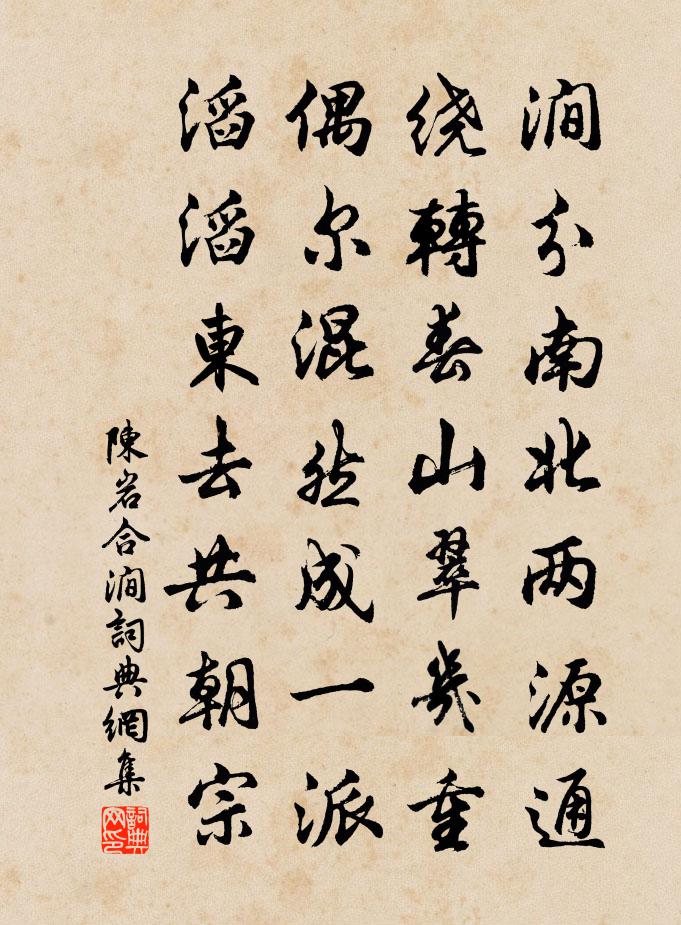 澗分南北两源通
绕轉春山翠幾重
偶尔混然成一派
滔滔東去共朝宗
陳岩合澗詞典網集
詞典网印